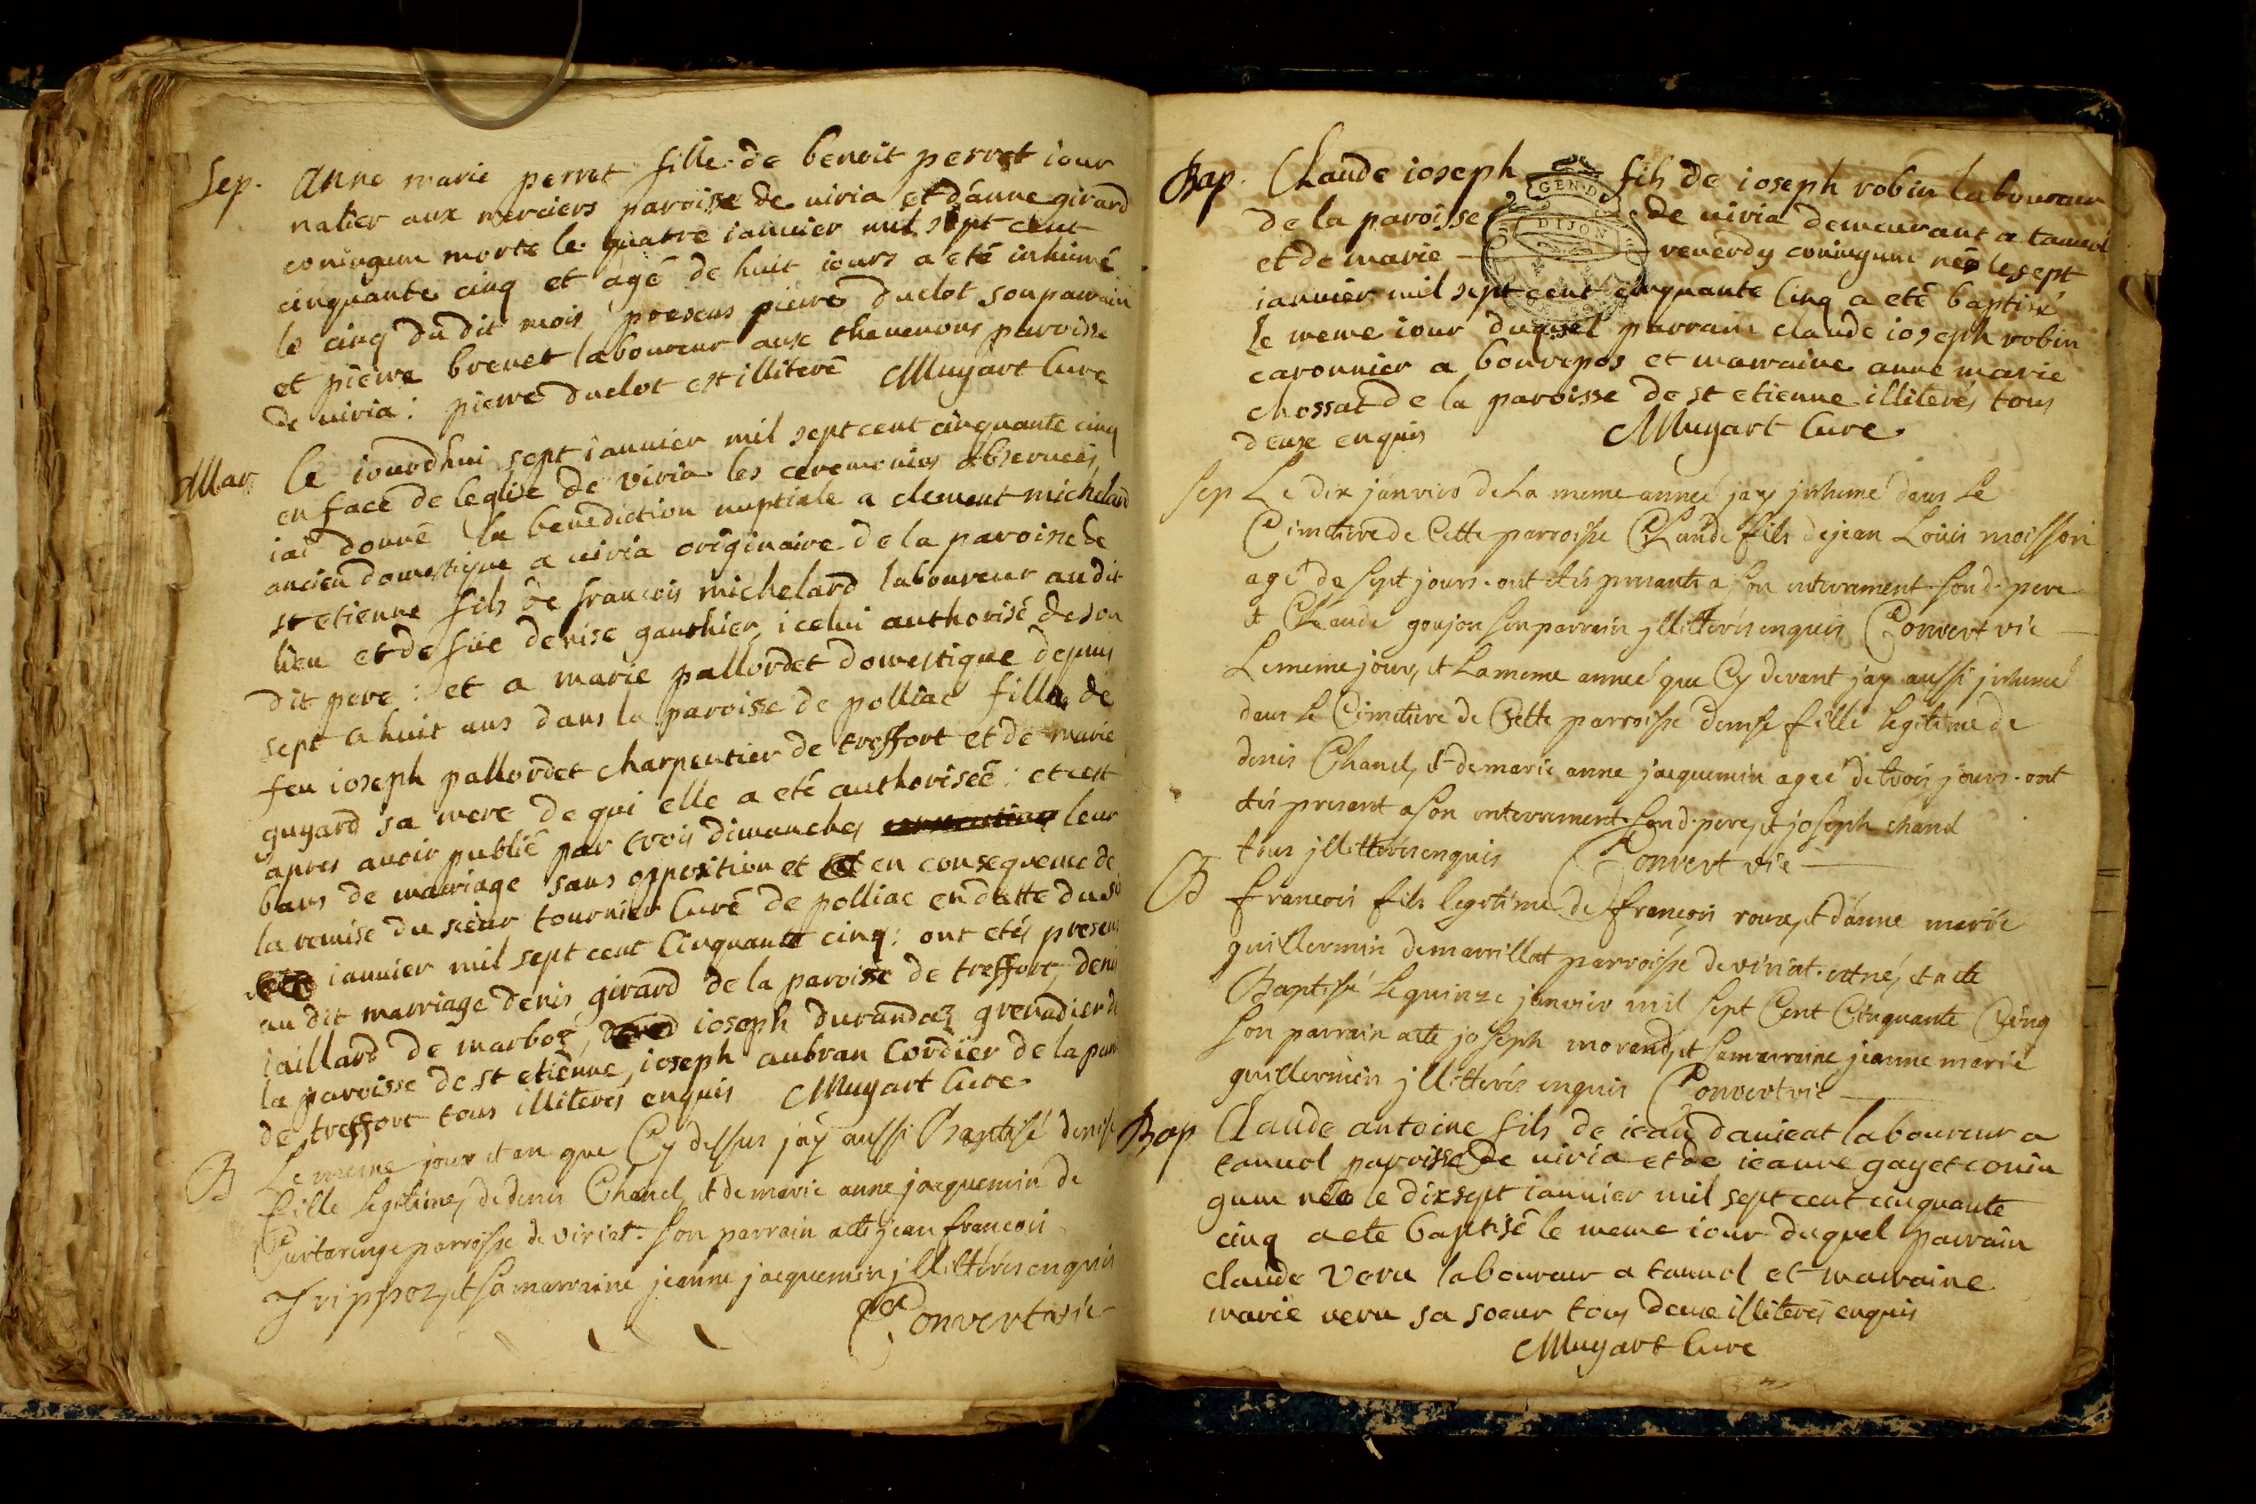 Sep. Anne marie perret fille de benoit perret iour
nalier aux merciers paroisse de viria et d'anne girard
coniugum morte le quatre ianvier mil sept cent
cinquante cinq et agé de huit iours a eté inhumé
le cinq du dit mois, presens pierre duclot son parrain
et pierre brevet laboureur aux thevenons paroisse
de viria: pierre duclot est illiteré CMugart Curé
Mar Ce iourdhui sept ianvier mil sept cent cinquante cinq
en face de leglise de viria les ceremonies observeés
iai donné la benediction nuptiale a clement michelard
ancien domestique a viria originaire de la paroisse de
st etienne fils de francois michelard laboureur au dit
lieu et de füe denise gauthier, icelui authorisé de son
dit pere: et a marie pallordet domestique depuis
sept a huit ans dans la paroisse de polliac fille de
feu ioseph pallordet charpentier de treffort et de marie
guyard sa mere de qui elle a eté authorisée: et cest
apres avoir publié par trois dimanches leur
bans de mariage sans opposition et en consequence de
la remise du sieur tournier Curé de polliac en datte du
ianvier mil sept cent Cinquante cinq: ont etés presens
au dit marriage denis girard de la paroisse de treffort, denis
iaillard de marboz, ioseph durandaz grenadier de
la paroisse de st etienne, ioseph aubran Cordier de la par
de treffort tous illiterés enquis CMugart Curé
B Le meme jour et an que Cy dessus jay aussi Baptisé denise
fille legitime, de denis Chanel, et de marie anne jacquemin de
Curtaringe parroisse de viriat. son parrain a eté jean francois
Trippoz, et sa marraine jeanne jacquemin jllitterés enquis
Convert vie
Bap. Claude ioseph fils de ioseph robin laboureur
GEN.D
DIJON
de la paroisse de viria demeurant a tannol
et de marie venerdy coniugum né le sept
ianvier mil sept cent cinquante Cinq a eté baptisé
le meme iour duquel parrain claude ioseph robin
caronnier a bourepos et marraine anne marie
chossat de la paroisse de st etienne illiterés tous
deux enquis CMugart Curé
Sep Le dix janvier de La meme année jay jnhumé dans Le
Cimetiere de Cette parroisse Claude fils de jean Loüis moisson
agé de sept jours. ont étés presents a son enterrement son d. pere
et Claude goujon son parrain jllitterés enquis Convert vie
Le meme jour, et La meme année que Cy devant jay aussi jnhumé
dans Le Cimetiere de Cette parroisse denise fille legitime de
denis Chanel, et de marie anne jacquemin ageé de trois jours. ont
étés present a son enterrement son d. pere, et joseph chanel
tous jllitterés enquis Convert vie
B francois fils legitime de françois roux, et d'anne marie
guillermin de marillat parroisse de viriat. est né, et a eté
Baptisé Le quinze janvier mil sept Cent Cinquante Cinq
Son parrain a eté joseph morand, et sa marraine jeanne marie
guillermin jllitterés enquis Convert vie
Bap Claude antoine fils de iean danieat laboureur a
tannol paroisse de viria et de ieanne gayet coniu
gum né le dixsept ianvier mil sept cent cinquante
cinq a eté baptisé le meme iour duquel parrain
claude veru laboureur a tannol et marraine
marie veru sa soeur tous deux illiterés enquis
CMugart Curé